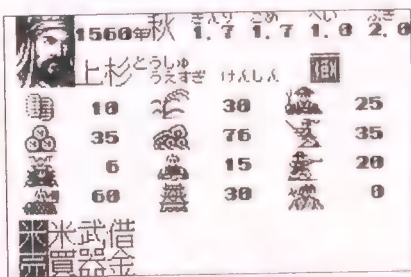 1560年秋 きんり1.7 こめ1.7 へい1.0 ぶき2.0
とうしゅ
上杉 うえすぎ けんしん
10 30 25
35 76 35
6 15 20
60 30 0
米 米 武 借
売 買 器 金